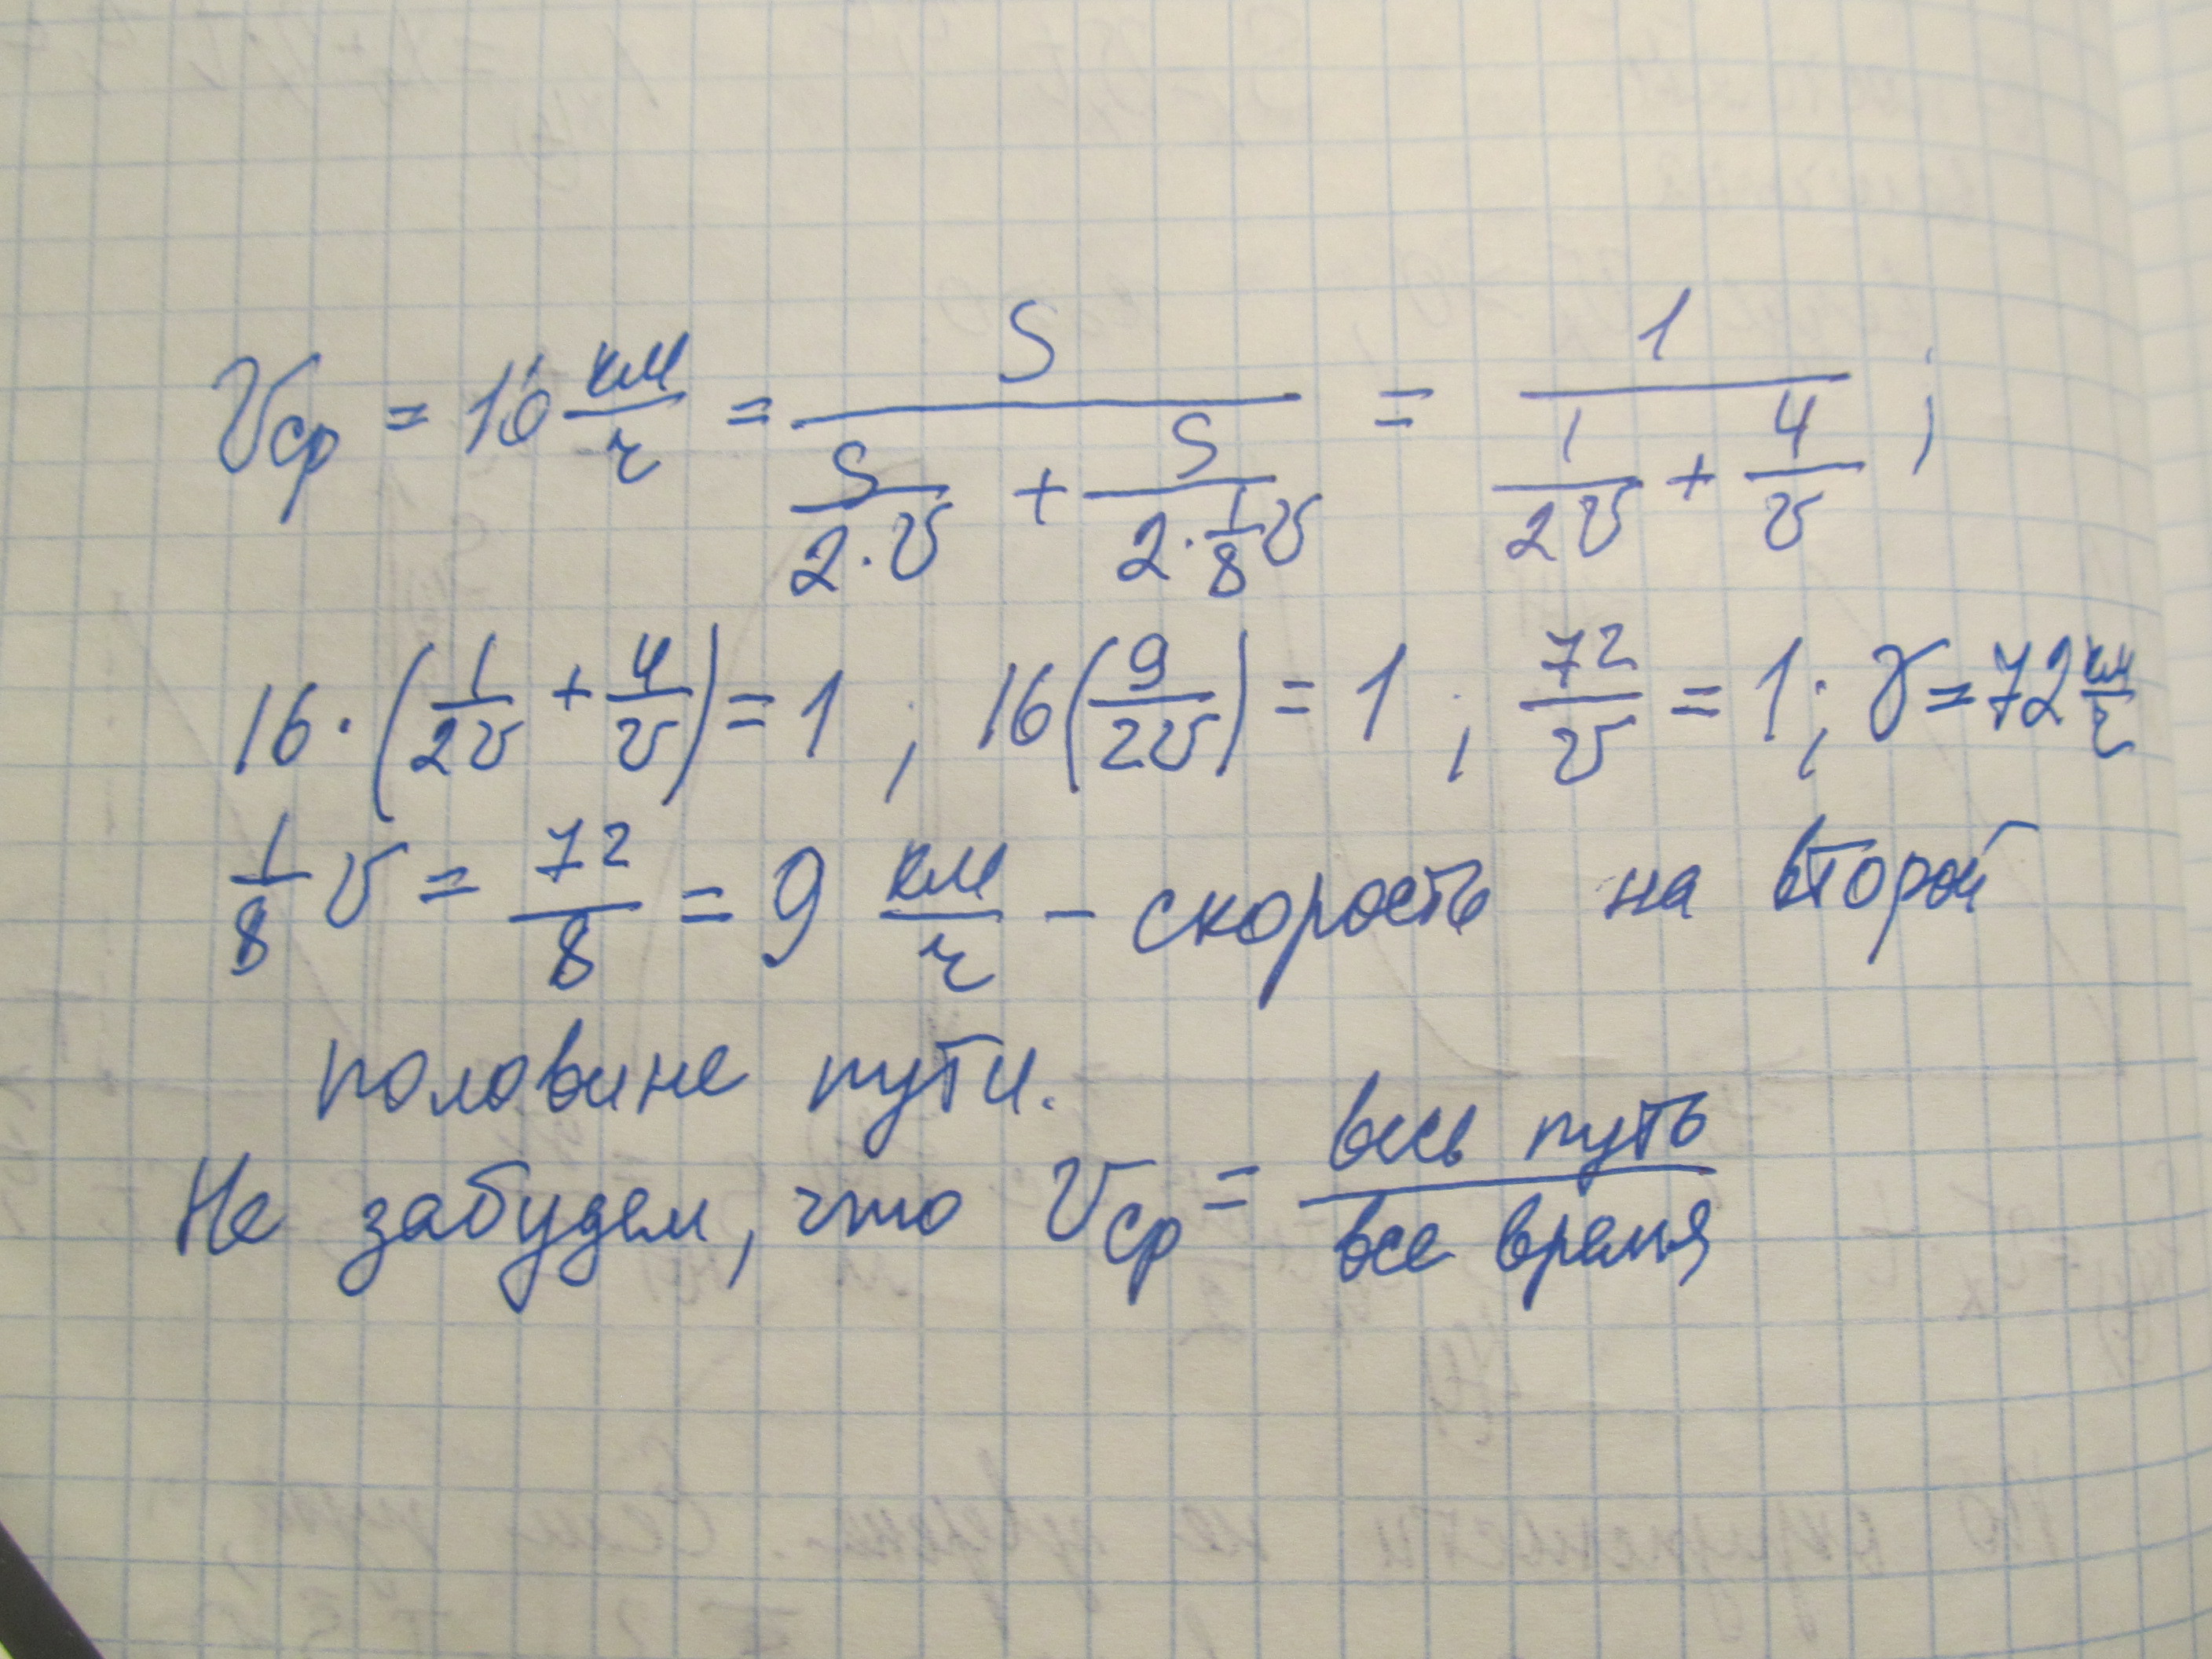 Vср = 16 км/ч = S / (S/(2·v) + S/(2·1/8v)) = 1 / (1/(2v) + 4/v) ;
16·(1/(2v) + 4/v) = 1 ; 16(9/(2v)) = 1 ; 72/v = 1 ; v = 72 км/ч
1/8 v = 72/8 = 9 км/ч – скорость на второй
половине пути.
Не забудем, что Vср = весь путь / все время